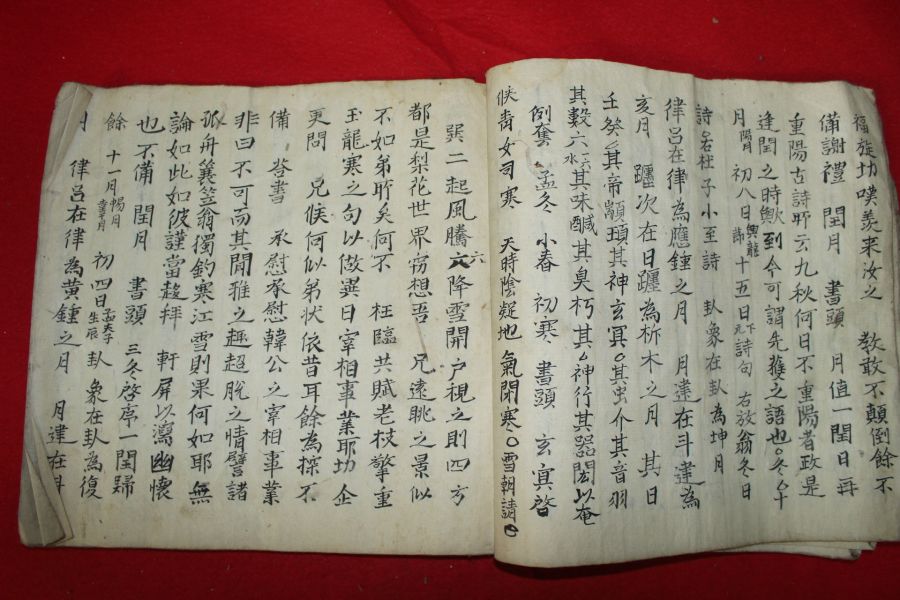 福旋切嘆羨来汝之 教敢不顛倒餘不
備謝禮 閏月 書頭 月值一閏日再
重陽古詩所云九秋何日不重陽者政是
逢閏之時歟到今可謂先獲之語也○冬十
月陽月 初八日 十五日下元 詩句 右放翁冬日
詩 右杜子小至詩 卦象在卦為坤月
律呂在律為應鍾之月 月建在斗建為
亥月 躔次在日躔為析木之月 其日
壬癸其帝顓頊其神玄冥○其虫介其音羽
其數六水其味醎其臭朽其神行其器閎以奄
例奪 孟冬 小春 初寒 書頭 玄冥啓
候青女司寒 天時陰疑地氣閉寒○雪朝請
巽二起風騰六降雪開户視之則四方
都是梨花世界窃想吾 兄遠眺之景似
不如弟所矣何不 枉臨共賦老杖擎重
玉龍寒之句以做異日宰相事業耶功企
更問 兄候何似弟狀依昔耳餘為探不
備 答書 承慰承慰韓公之宰相事業
非曰不可而其閒雅之趣超脫之情譬諸
孤舟簑笠翁獨釣寒江雪則果何如耶 無
論如此如彼謹當趍拜 軒屏以瀉幽懷
也不備 閏月 書頭 三冬啓序一閏歸
餘 十一月暢月 初四日孟夫子生辰 卦象在卦為復
月 律呂在律為黄鍾之月 月建在斗